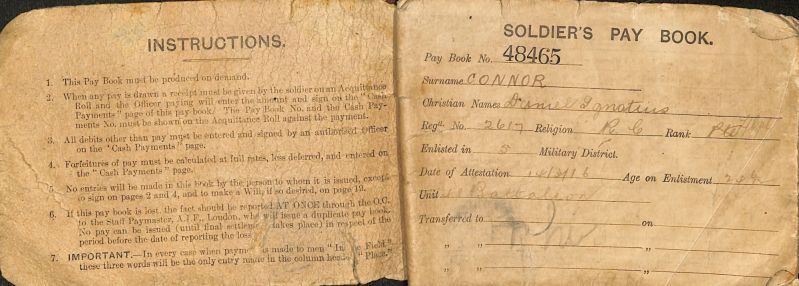 INSTRUCTIONS.
1. This Pay Book must be produced on demand.
2. When any pay is drawn a receipt must be given by the soldier on an Acquittance
Roll and the Officer paying will enter the amount and sign on the "Cash
Payments" page of this pay book. The Pay Book No. and the Cash Pay-
ments No. must be shown on the Acquittance Roll against the payment.
3. All debits other than pay must be entered and signed by an authorised Officer
on the "Cash Payments" page.
4. Forfeitures of pay must be calculated at full rates, less deferred, and entered on
the "Cash Payments" page.
5. No entries will be made in this book by the person to whom it is issued, except
to sign on pages 2 and 4, and to make a Will, if so desired, on page 12.
6. If this pay book is lost, the fact should be reported AT ONCE through the O.C.
to the Staff Paymaster, A.I.F., London, who will issue a duplicate pay book.
No pay can be issued (until final settlement takes place) in respect of the
period before the date of reporting the loss.
7. IMPORTANT.—In every case when payment is made to men "In the Field,"
these three words will be the only entry made in the column headed "Place."
SOLDIER'S PAY BOOK.
Pay Book No. 48465
Surname CONNOR
Christian Names Daniel Ignatius
Regtl. No. 2617 Religion R C Rank Pte
Enlisted in 5 Military District.
Date of Attestation Age on Enlistment
Unit Battalion
Transferred to on
" " "
" " "